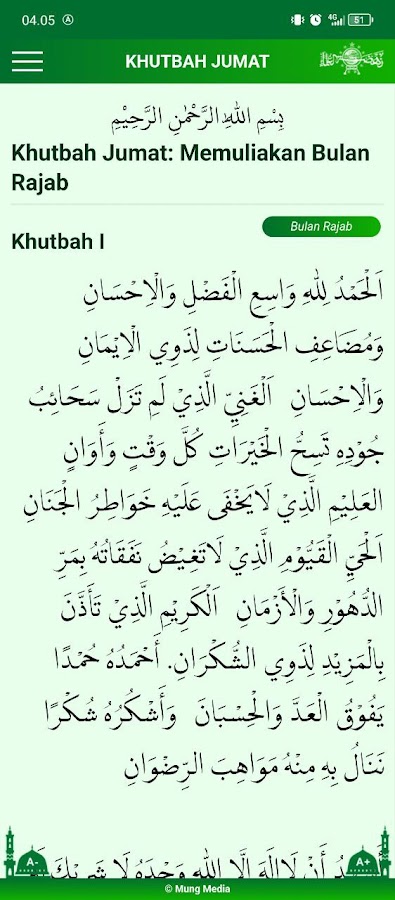 04.05
4G
51
KHUTBAH JUMAT
بِسْمِ اللهِ الرَّحْمٰنِ الرَّحِيْمِ
Khutbah Jumat: Memuliakan Bulan
Rajab
Bulan Rajab
Khutbah I
اَلْحَمْدُ لِلّٰهِ وَاسِعِ الْفَضْلِ وَالْاِحْسَانِ
وَمُضَاعِفِ الْحَسَنَاتِ لِذَوِي الْاِيْمَانِ
وَالْاِحْسَانِ اَلْغَنِيِّ الَّذِيْ لَمْ تَزَلْ سَحَائِبُ
جُوْدِهِ تَسِحُّ الْخَيْرَاتِ كُلَّ وَقْتٍ وَأَوَانٍ
العَلِيْمِ الَّذِيْ لَايَخْفَى عَلَيْهِ خَوَاطِرُ الْجَنَانِ
اَلْحَيِّ الْقَيُّوْمِ الَّذِيْ لَاتَغِيْضُ نَفَقَاتُهُ بِمَرِّ
الدُّهُوْرِ وَالْأَزْمَانِ اَلْكَرِيْمِ الَّذِيْ تَأَذَّنَ
بِالْمَزِيْدِ لِذَوِي الشُّكْرَانِ. أَحْمَدُهُ حُمْدًا
يَفُوْقُ الْعَدَّ وَالْحِسْبَانَ وَأَشْكُرُهُ شُكْرًا
نَنَالُ بِهِ مِنْهُ مَوَاهِبَ الرِّضْوَانِ
أَنْ لَااِلَهَ اِلَّا اللهُ وَحْدَهُ لَا شَرِيْكَ
A-
A+
© Mung Media